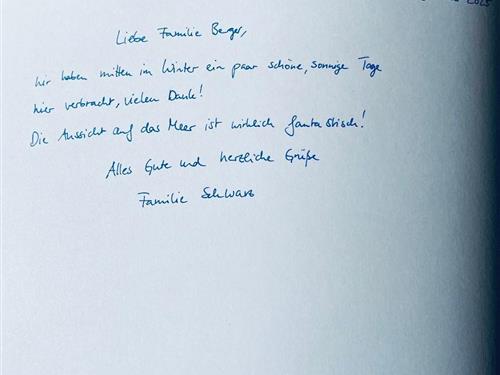 2025
Liebe Familie Berger,
wir haben mitten im Winter ein paar schöne, sonnige Tage
hier verbracht, vielen Dank!
Die Aussicht auf das Meer ist wirklich fantastisch!
Alles Gute und herzliche Grüße
Familie Schwarz